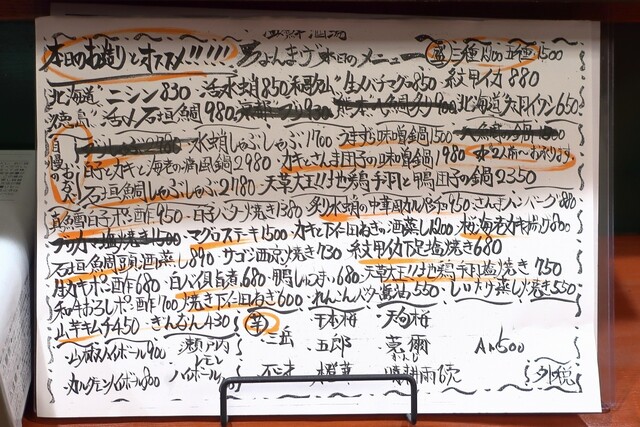 本日のお造りとオススメ!!!!! 男ちょんまげ 本日のメニュー 盛 三種1200 五種1500
北海道 ニシン830 活水蛸850 和歌山 生メバチマグロ850 紋甲イカ880
徳島 活〆石垣鯛980 北海道 真イワシ650
自慢のお鍋 水蛸しゃぶしゃぶ1700 うまから味噌鍋1500
白子とカキと海老の痛風鍋2980 カキとさんま団子の味噌鍋1980 2人前〜
石垣鯛しゃぶしゃぶ2780 天草大王!!地鶏手羽と鴨団子の鍋2350
真鱈白子ポン酢950 白子バター焼き1380 炙り水蛸の中華風カルパッチョ950 さんまハンバーグ880
マグロステーキ1500 カキと下仁田ねぎの酒蒸し1200 桜海老かき揚げ800
石垣鯛頭酒蒸し890 サゴシ西京焼き730 紋甲イカ下足塩焼き680
生カキポン酢680 白バイ貝旨煮680 鴨しゅうまい680 天草大王!!地鶏手羽塩焼き750
和牛おろしポン酢700 焼き下仁田ねぎ600 れんこん 550 しいたけ蒸し焼き550
山芋キムチ450 きんなん430 芋 三岳 千本桜 天狗桜
山崎ハイボール900 瀬戸内レモンハイボール 五郎 豪爾 ALL500
カルヴァドスハイボール800 不二才 橙華 晴耕雨読 外税